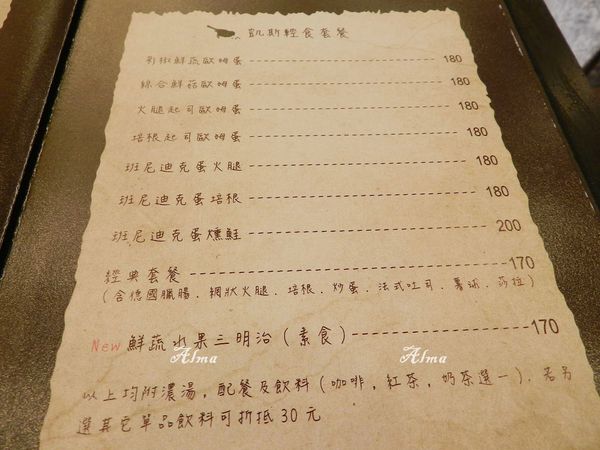 凱斯輕食套餐
彩椒鮮蔬歐姆蛋 180
綜合鮮菇歐姆蛋 180
火腿起司歐姆蛋 180
培根起司歐姆蛋 180
班尼迪克蛋火腿 180
班尼迪克蛋培根 180
班尼迪克蛋燻鮭 200
經典套餐 170
(含德國臘腸．網狀火腿．培根．炒蛋．法式吐司．薯球．莎拉)
New 鮮蔬水果三明治(素食) 170
Alma Alma
以上均附濃湯，配餐及飲料(咖啡，紅茶，奶茶選一)，若另
選其它單品飲料可折抵30元